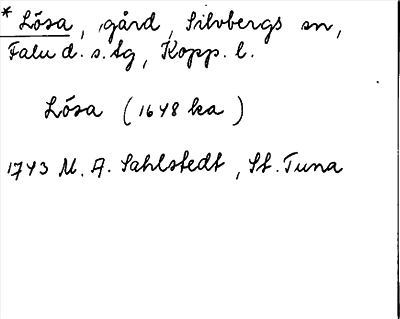 * Lösa, gård, Silvbergs sn,
Falu d. s. tg, Kopp. l.
Lösa (1648 ka)
1743 M. A. Sahlstedt, St. Tuna